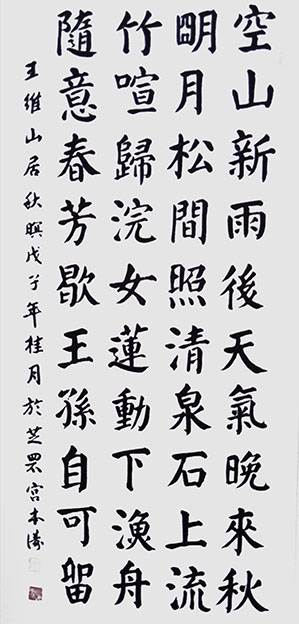 空山新雨後天氣晚來秋
明月松間照清泉石上流
竹喧歸浣女蓮動下漁舟
隨意春芳歇王孫自可留
王維山居秋暝戊子年桂月於芝罘宮本涛